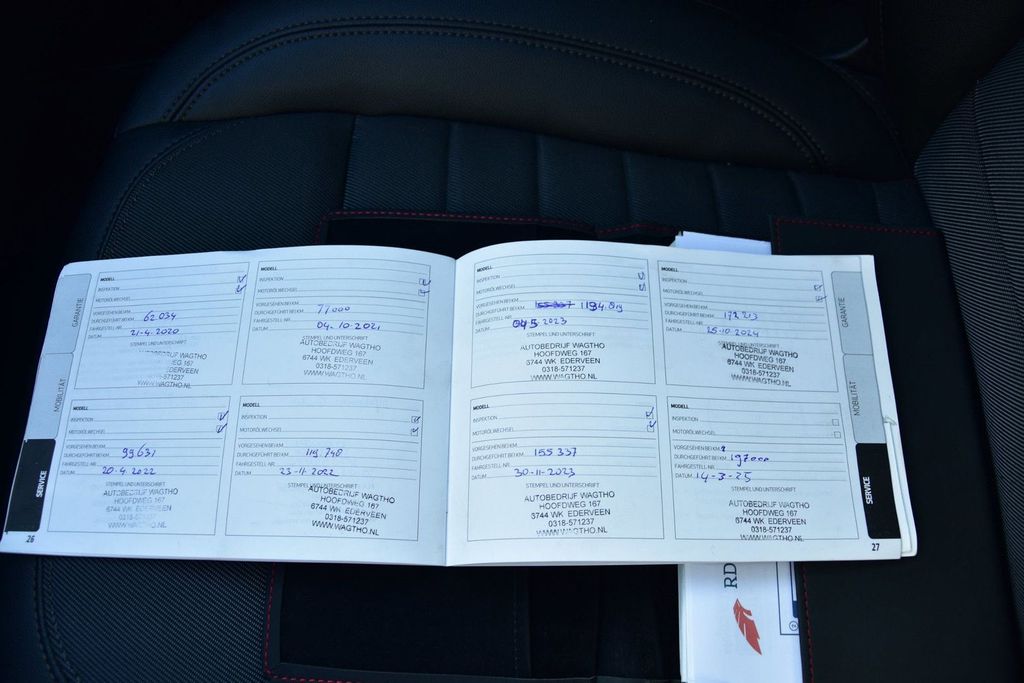 GARANTIE
MOBILITÄT
SERVICE
26
MODELL
INSPEKTION
MOTORÖLWECHSEL
VORGESEHEN BEI KM
DURCHGEFÜHRT BEI KM 62 034
FAHRGESTELL-NR.
DATUM 21-4-2020
STEMPEL UND UNTERSCHRIFT
AUTOBEDRIJF WAGTHO
EDERVEEN
0318-571237
WWW.WAGTHO.NL
MODELL
INSPEKTION
MOTORÖLWECHSEL
VORGESEHEN BEI KM
DURCHGEFÜHRT BEI KM 77000
FAHRGESTELL-NR.
DATUM 04-10-2021
STEMPEL UND UNTERSCHRIFT
AUTOBEDRIJF WAGTHO
HOOFDWEG 167
6744 WK EDERVEEN
0318-571237
WWW.WAGTHO.NL
MODELL
INSPEKTION
MOTORÖLWECHSEL
VORGESEHEN BEI KM
DURCHGEFÜHRT BEI KM 99631
FAHRGESTELL-NR.
DATUM 20-4-2022
STEMPEL UND UNTERSCHRIFT
AUTOBEDRIJF WAGTHO
HOOFDWEG 167
6744 WK EDERVEEN
0318-571237
WWW.WAGTHO.NL
MODELL
INSPEKTION
MOTORÖLWECHSEL
VORGESEHEN BEI KM
DURCHGEFÜHRT BEI KM 119 748
FAHRGESTELL-NR.
DATUM 23-11-2022
STEMPEL UND UNTERSCHRIFT
AUTOBEDRIJF WAGTHO
HOOFDWEG 167
6744 WK EDERVEEN
0318-571237
WWW.WAGTHO.NL
MODELL
INSPEKTION
MOTORÖLWECHSEL
VORGESEHEN BEI KM
DURCHGEFÜHRT BEI KM 155 337
FAHRGESTELL-NR.
DATUM 2023
STEMPEL UND UNTERSCHRIFT
AUTOBEDRIJF WAGTHO
HOOFDWEG 167
6744 WK EDERVEEN
0318-571237
WWW.WAGTHO.NL
MODELL
INSPEKTION
MOTORÖLWECHSEL
VORGESEHEN BEI KM
DURCHGEFÜHRT BEI KM 172 213
FAHRGESTELL-NR.
DATUM 25-10-2024
STEMPEL UND UNTERSCHRIFT
AUTOBEDRIJF WAGTHO
HOOFDWEG 167
6744 WK EDERVEEN
0318-571237
WWW.WAGTHO.NL
MODELL
INSPEKTION
MOTORÖLWECHSEL
VORGESEHEN BEI KM
DURCHGEFÜHRT BEI KM 155 337
FAHRGESTELL-NR.
DATUM 30-11-2023
STEMPEL UND UNTERSCHRIFT
AUTOBEDRIJF WAGTHO
HOOFDWEG 167
6744 WK EDERVEEN
0318-571237
WWW.WAGTHO.NL
MODELL
INSPEKTION
MOTORÖLWECHSEL
VORGESEHEN BEI KM
DURCHGEFÜHRT BEI KM 197000
FAHRGESTELL-NR.
DATUM 14-3-25
STEMPEL UND UNTERSCHRIFT
AUTOBEDRIJF WAGTHO
HOOFDWEG 167
6744 WK EDERVEEN
0318-571237
WWW.WAGTHO.NL
GARANTIE
MOBILITÄT
SERVICE
27
RD